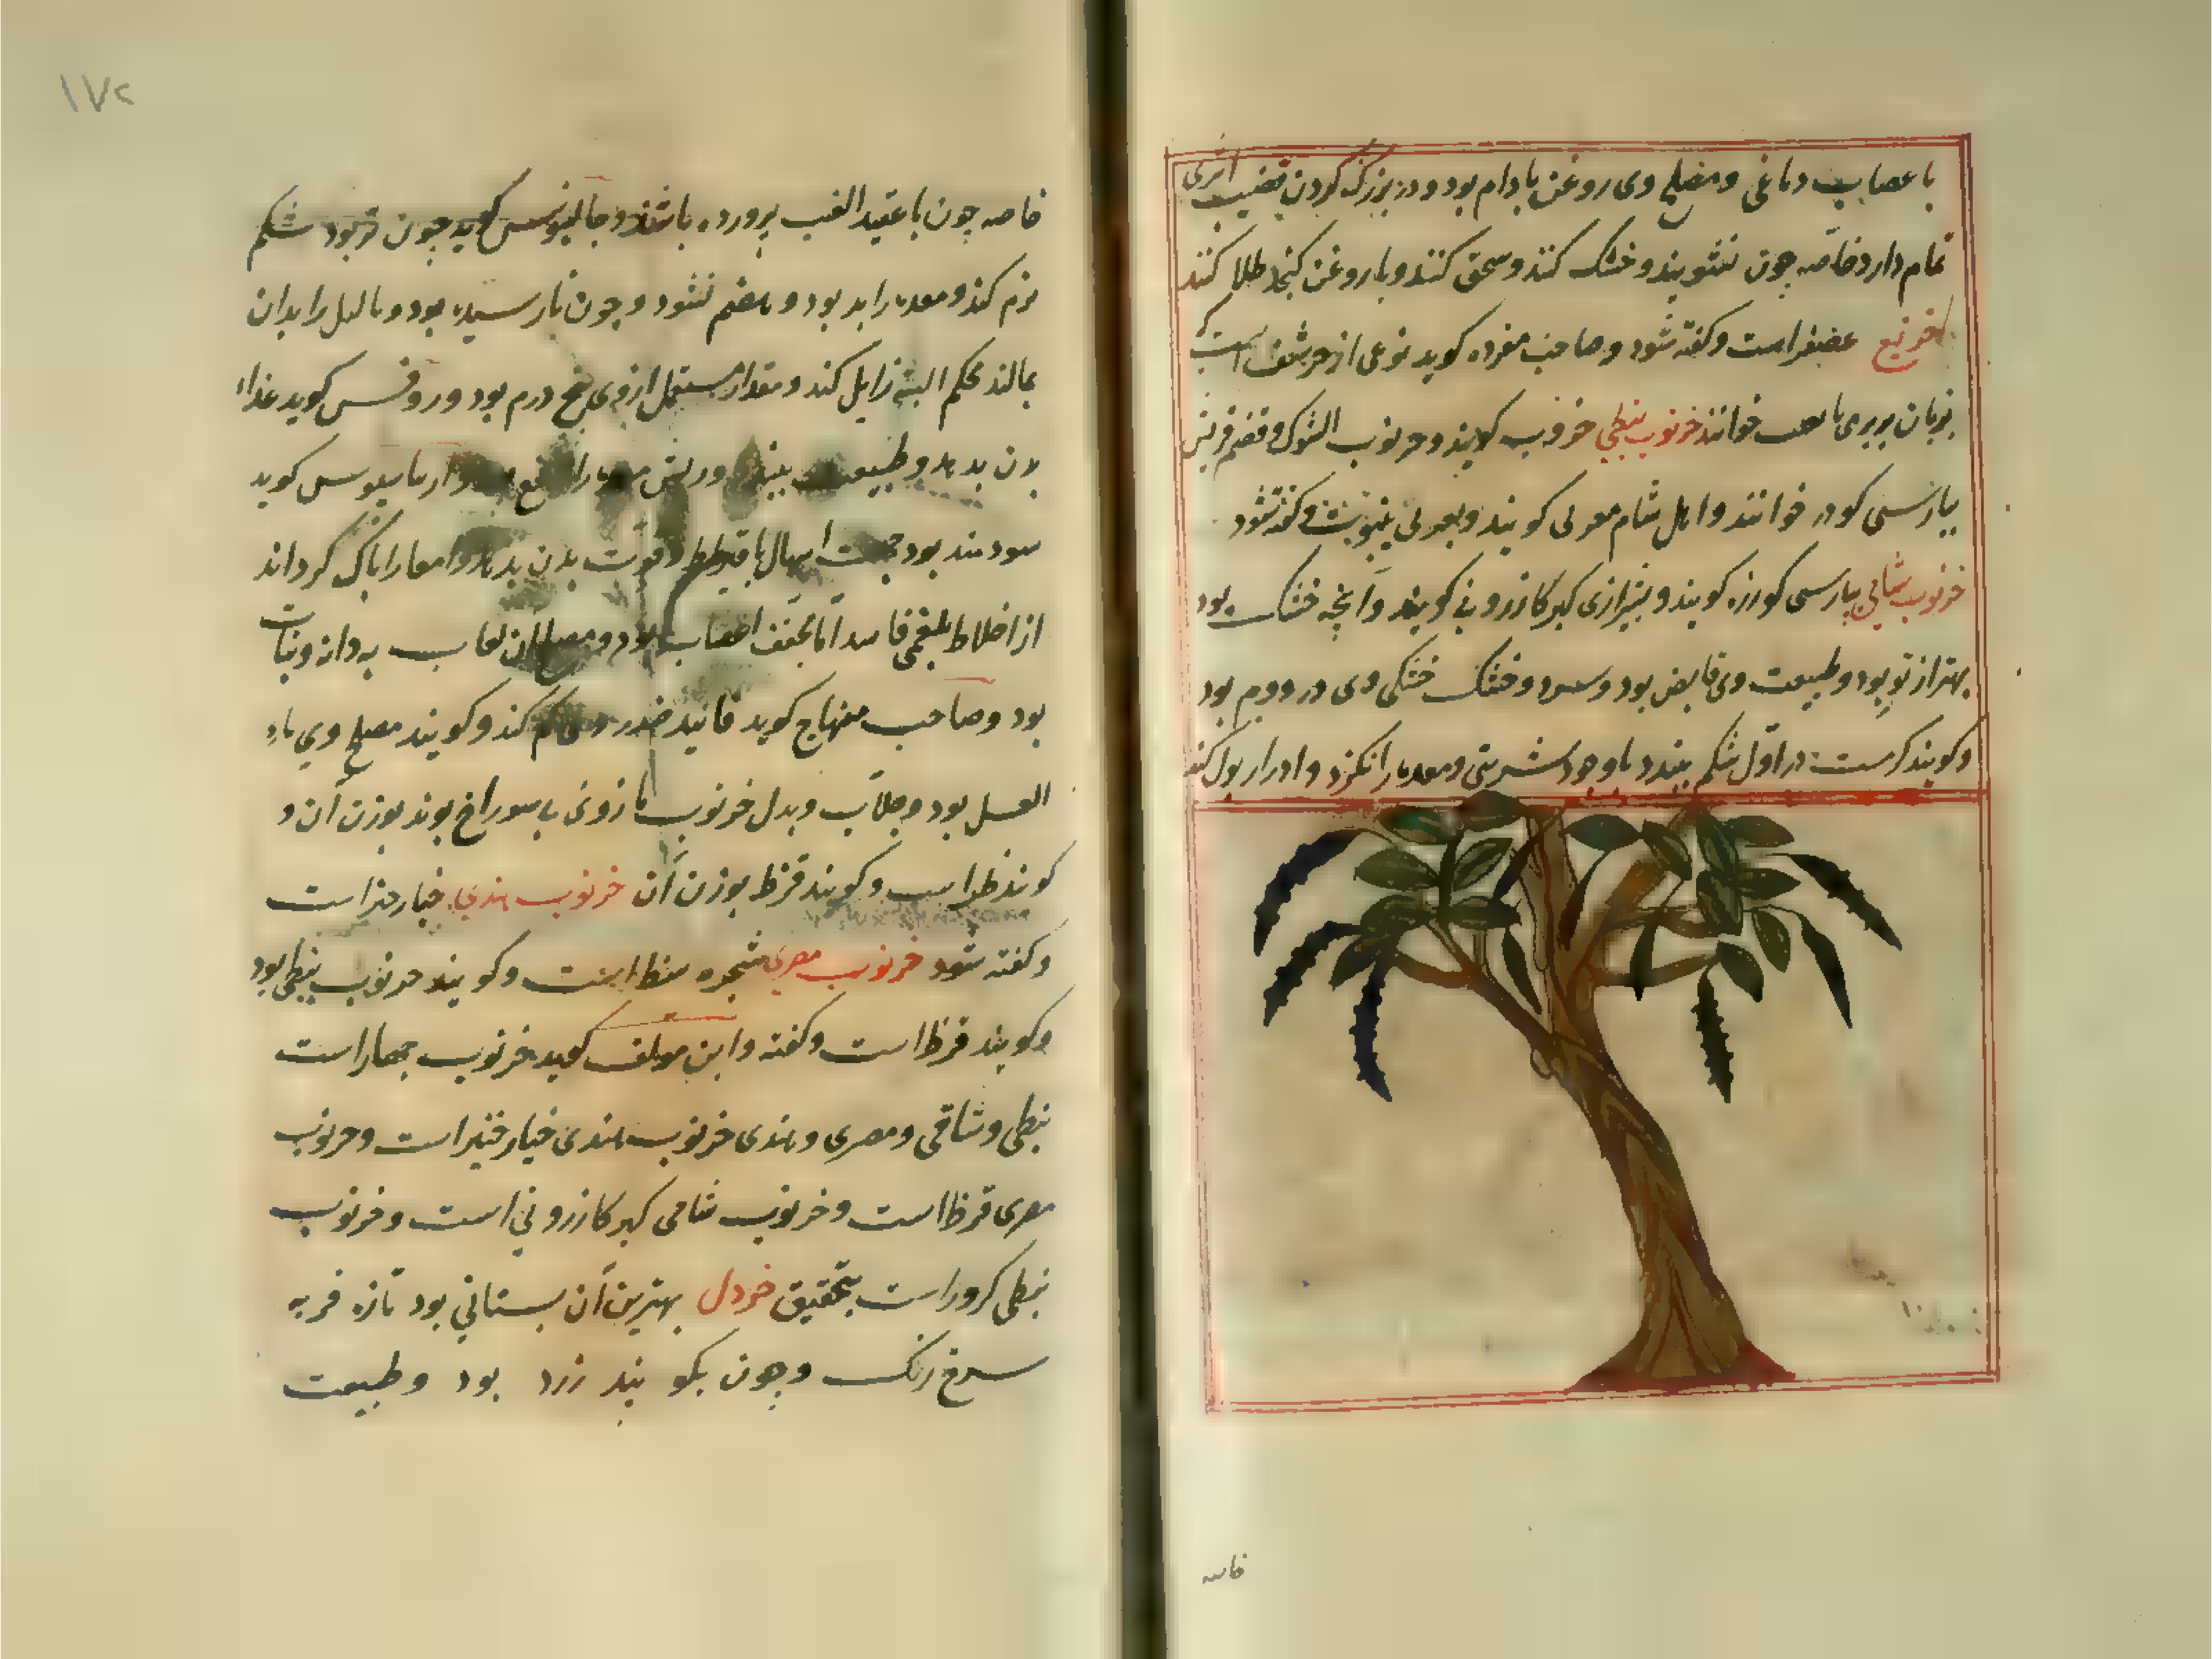 باعصاب دماغی ومصلح وی روغن بادام بود ودر بزرک کردن قضیب اثری
تمام دارد خاصه چون بشویند وخشک کنند وسحق کنند وباروغن کنجد طلا کنند
عصفر است وکفته شود وصاحب مفرده کوید نوعی از حرشف است
بزبان بربری خوانند خرنوب نبطی خروب کویند وخرنوب الشوک وقضم قریش
بپارسی کور خوانند واهل شام کویند وبعربی ینبوت وکفته شود
خرنوب شامی بپارسی کورزه کویند وبشیرازی کبر کازرونی کویند وآنچه خشک بود
بهتر از تر بود وطبیعت وی قابض بود وسرد وخشک خشکی وی در دوم بود
وکویند کرمست در اول شکم ببندد باوجود شیرینی ومعده را نکزد وادرار بول کند
خاصه
١٧٢
خاصه چون باعقید العنب پرورده باشند وجالینوس کوید چون تر بود شکم
نرم کند ومعده را بد بود وهضم نشود وچون نارسیده بود وثالیل را بدان
بمالند محکم البته زایل کند ومقدار مستعمل از وی پنج درم بود وروفس کوید غذاء
بدن بدهد وطبیعت ببندد وریش معده را نافع بود کوید
سودمند بود جهت اسهال وقوت بدن بدهد وامعا را پاک کرداند
از اخلاط بلغمی فاسد اما مجفف اعصاب بود ومصلح آن لعاب به دانه ونبات
بود وصاحب منهاج کوید فانید ضرر وی کم کند وکویند مصلح وی ماء
العسل بود وجلاب وبدل خرنوب مازوی بی سوراخ بود بوزن آن و
کویند وکویند قرظ بوزن آن خرنوب هندی خیار چنبر است
وکفته شود خرنوب مصری شجره سنط است وکویند خرنوب نبطی بود
وکویند قرظ است وکفته وابن مؤلف کوید خرنوب چهار است
نبطی وشامی ومصری وهندی خرنوب هندی خیار چنبر است وخرنوب
مصری قرظ است وخرنوب شامی کبر کازرونی است وخرنوب
نبطی کرور است بتحقیق خردل بهترین آن بستانی بود تازه فربه
سرخ رنک وچون بکویند زرد بود وطبیعت